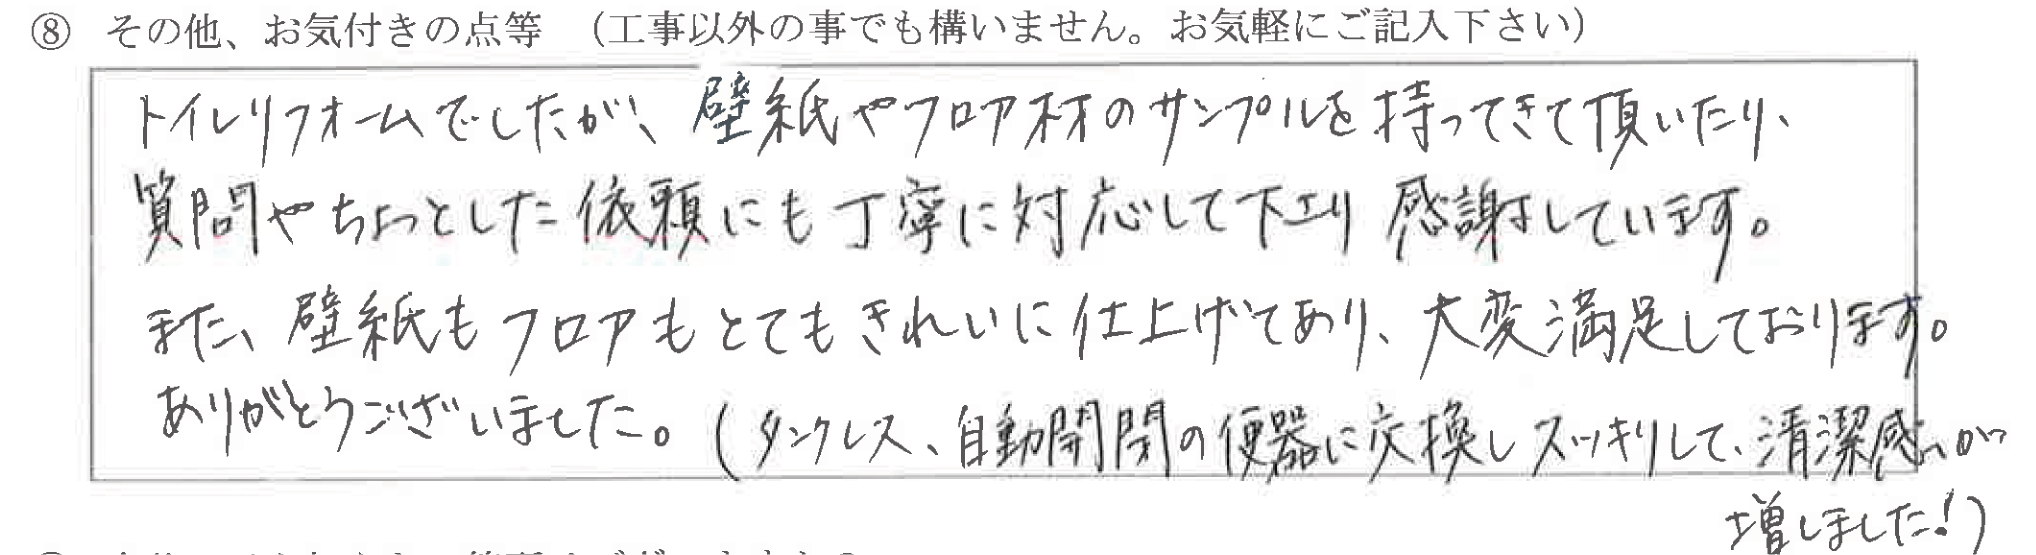 ⑧ その他、お気付きの点等 （工事以外の事でも構いません。お気軽にご記入下さい）
トイレリフォームでしたが、壁紙やフロア材のサンプルを持ってきて頂いたり、
質問やちょっとした依頼にも丁寧に対応して下さり感謝しています。
また、壁紙もフロアもとてもきれいに仕上げてあり、大変満足しております。
ありがとうございました。(タンクレス、自動開閉の便器に交換しスッキリして、清潔感が
増しました!)